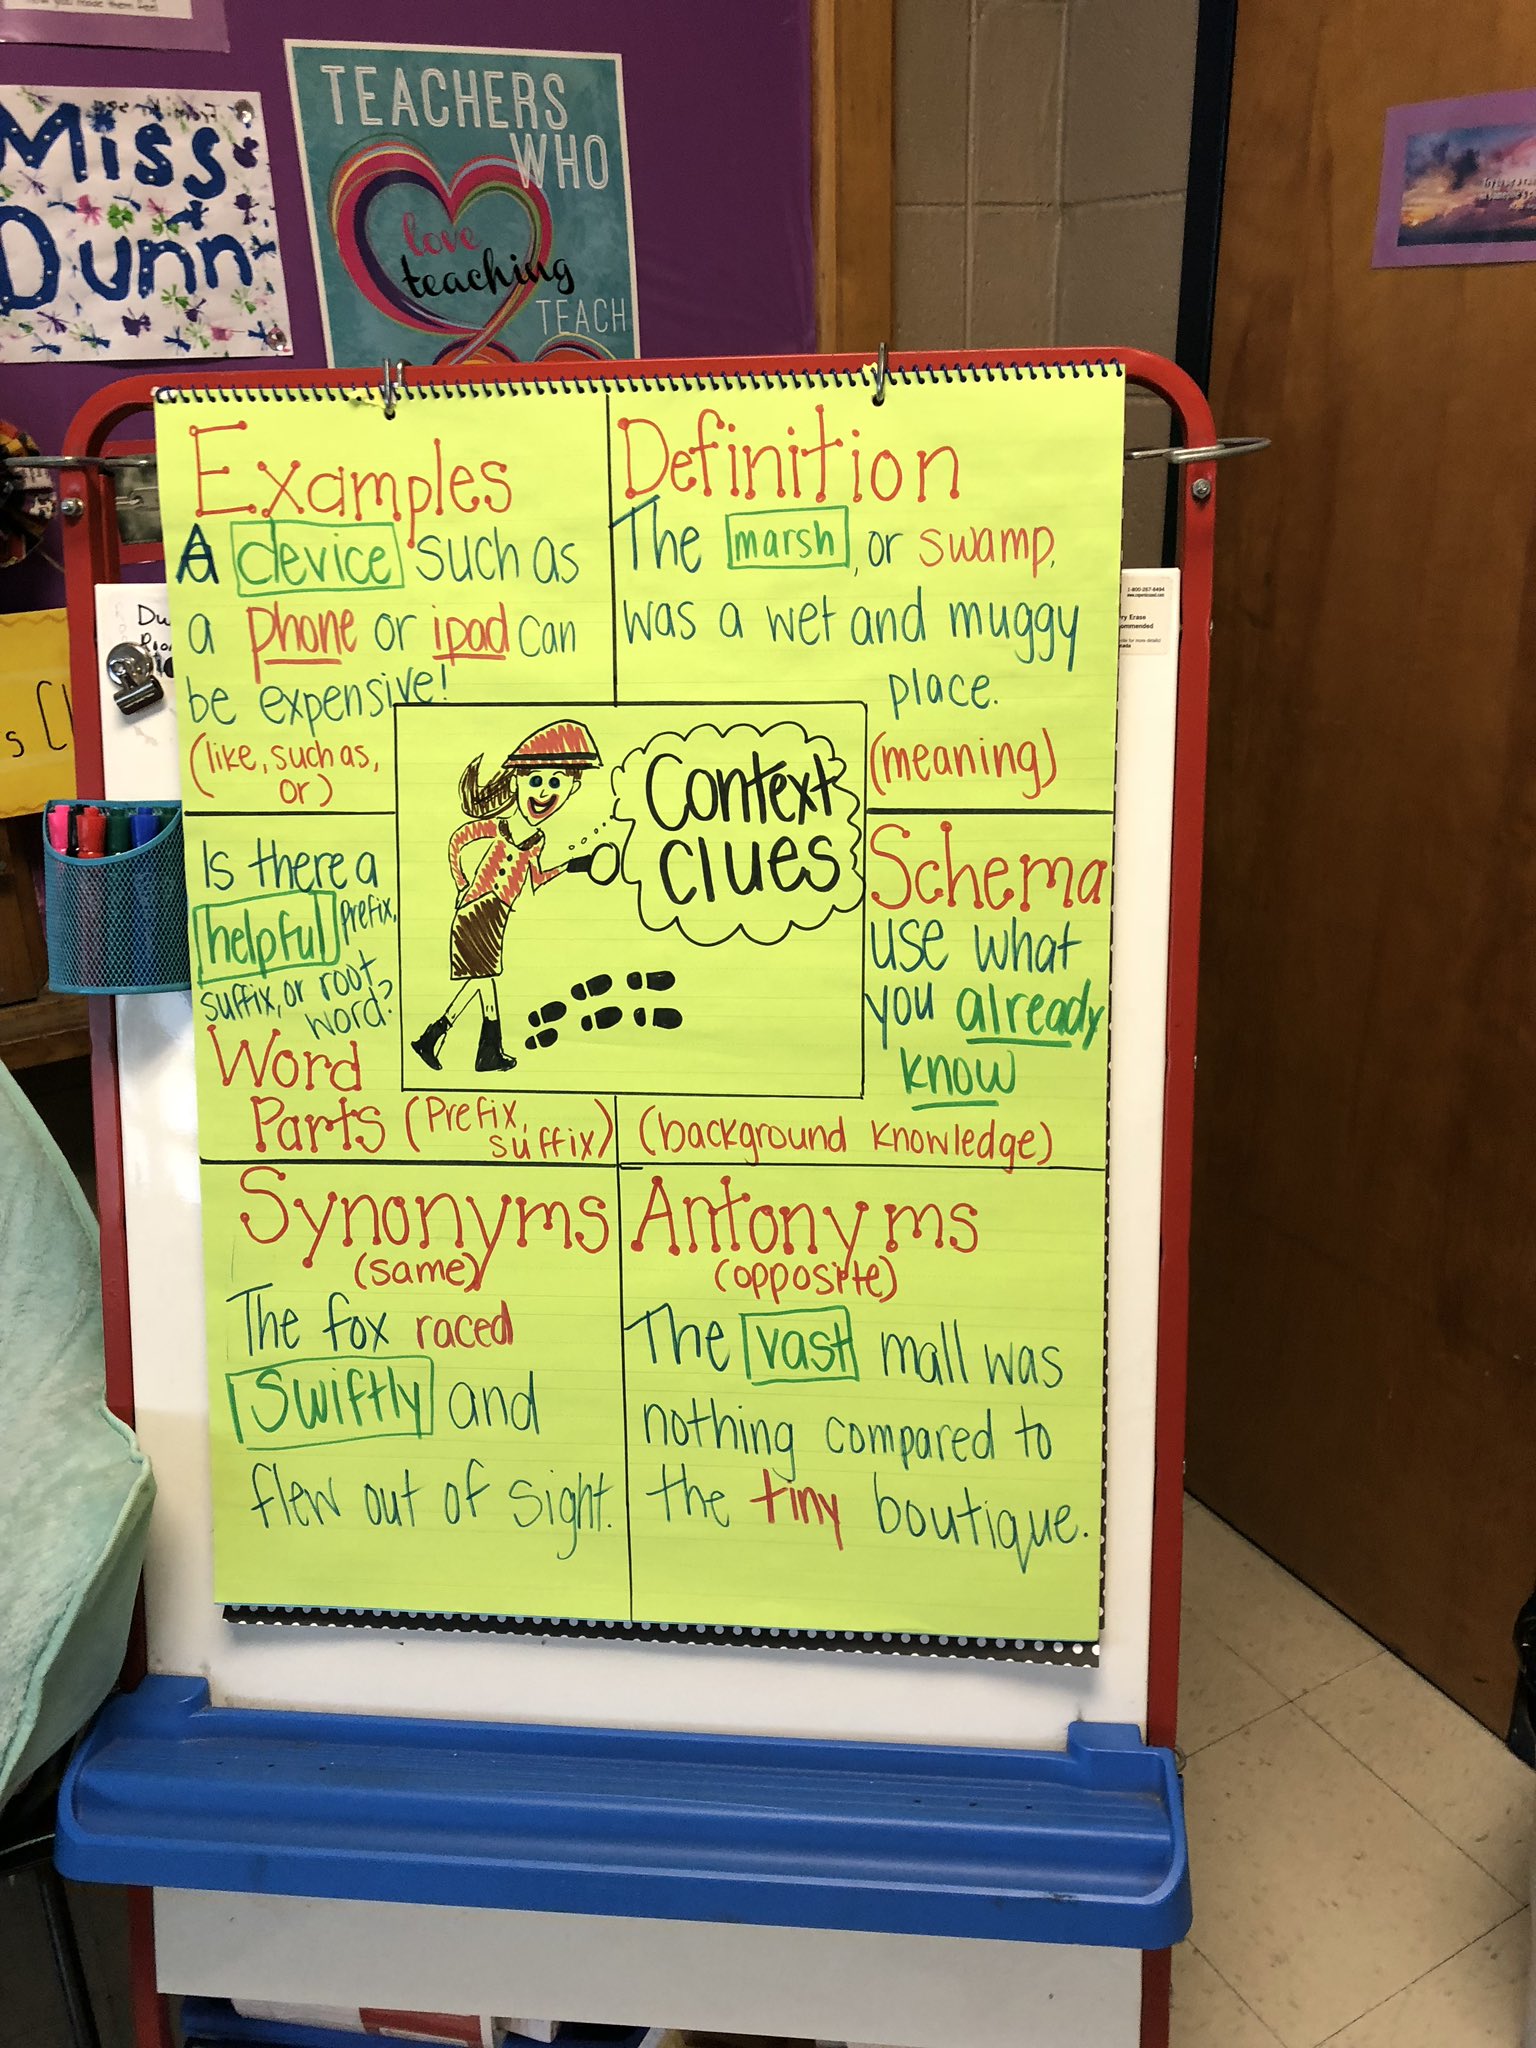 Miss
Dunn
TEACHERS
WHO
love
teaching
TEACH
Examples
A device such as
a phone or ipad can
be expensive!
(like, such as,
or)
Definition
The marsh, or swamp,
was a wet and muggy
place.
(meaning)
Context
clues
Is there a
helpful prefix,
suffix, or root
word?
Word
Parts (Prefix,
suffix)
Schema
use what
you already
know
(background knowledge)
Synonyms
(same)
The fox raced
swiftly and
flew out of sight.
Antonyms
(opposite)
The vast mall was
nothing compared to
the tiny boutique.
1-800-267-6494